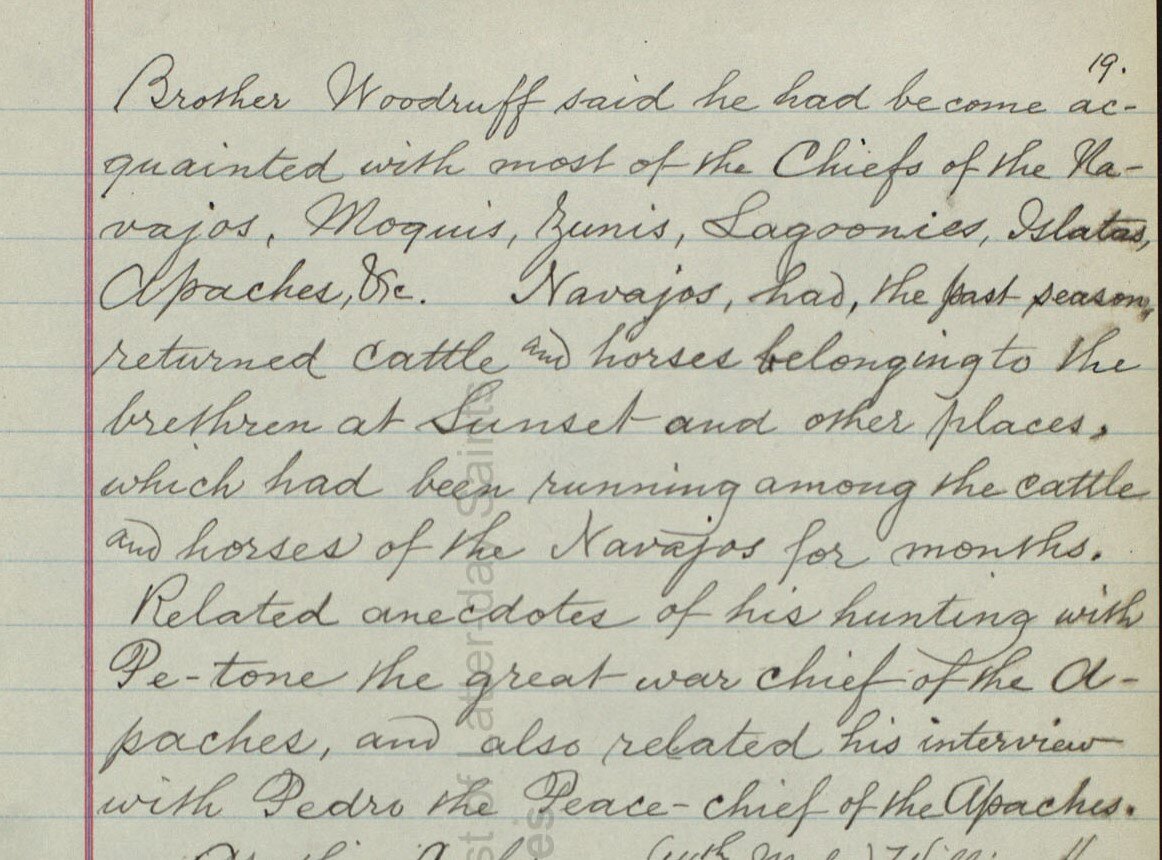 19.
Brother Woodruff said he had become ac-
quainted with most of the Chiefs of the Na-
vajos, Moquis, Zunis, Lagoonies, Islatas,
Apaches, &c. Navajos, had, the past season,
returned cattle and horses belonging to the
brethren at Sunset and other places,
which had been running among the cattle
and horses of the Navajos for months.
Related anecdotes of his hunting with
Pe-tone the great war chief of the A-
paches, and also related his interview
with Pedro the Peace-chief of the Apaches.